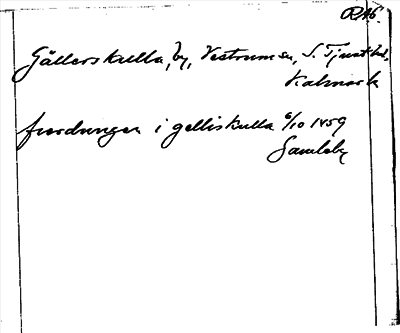 RAG.
Gällerskulla, by, Vestrum sn, S. Tjust hd,
Kalmar l.
fierdungen i gelliskulla 6/10 1459
Gamleby